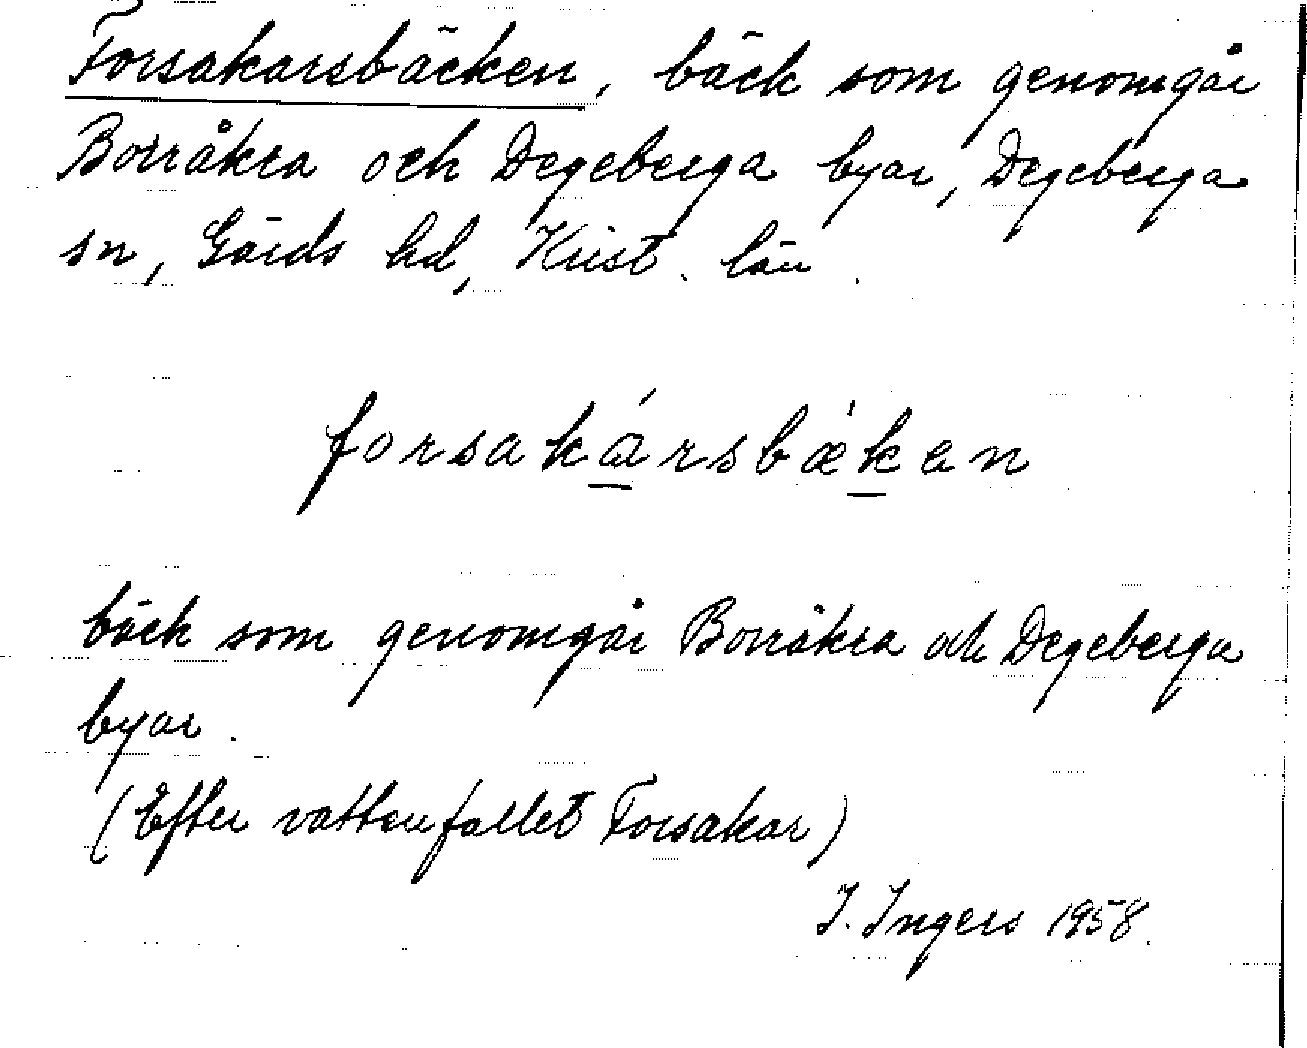 Forsakarsbäcken, bäck som genomgår
Borråkra och Degeberga byar, Degeberga
sn, Gärds hd, Krist. län.
forsaká̱rsbæ̀ḵen
bäck som genomgår Borråkra och Degeberga
byar.
(Efter vattenfallet Forsakar)
I. Ingers 1958.